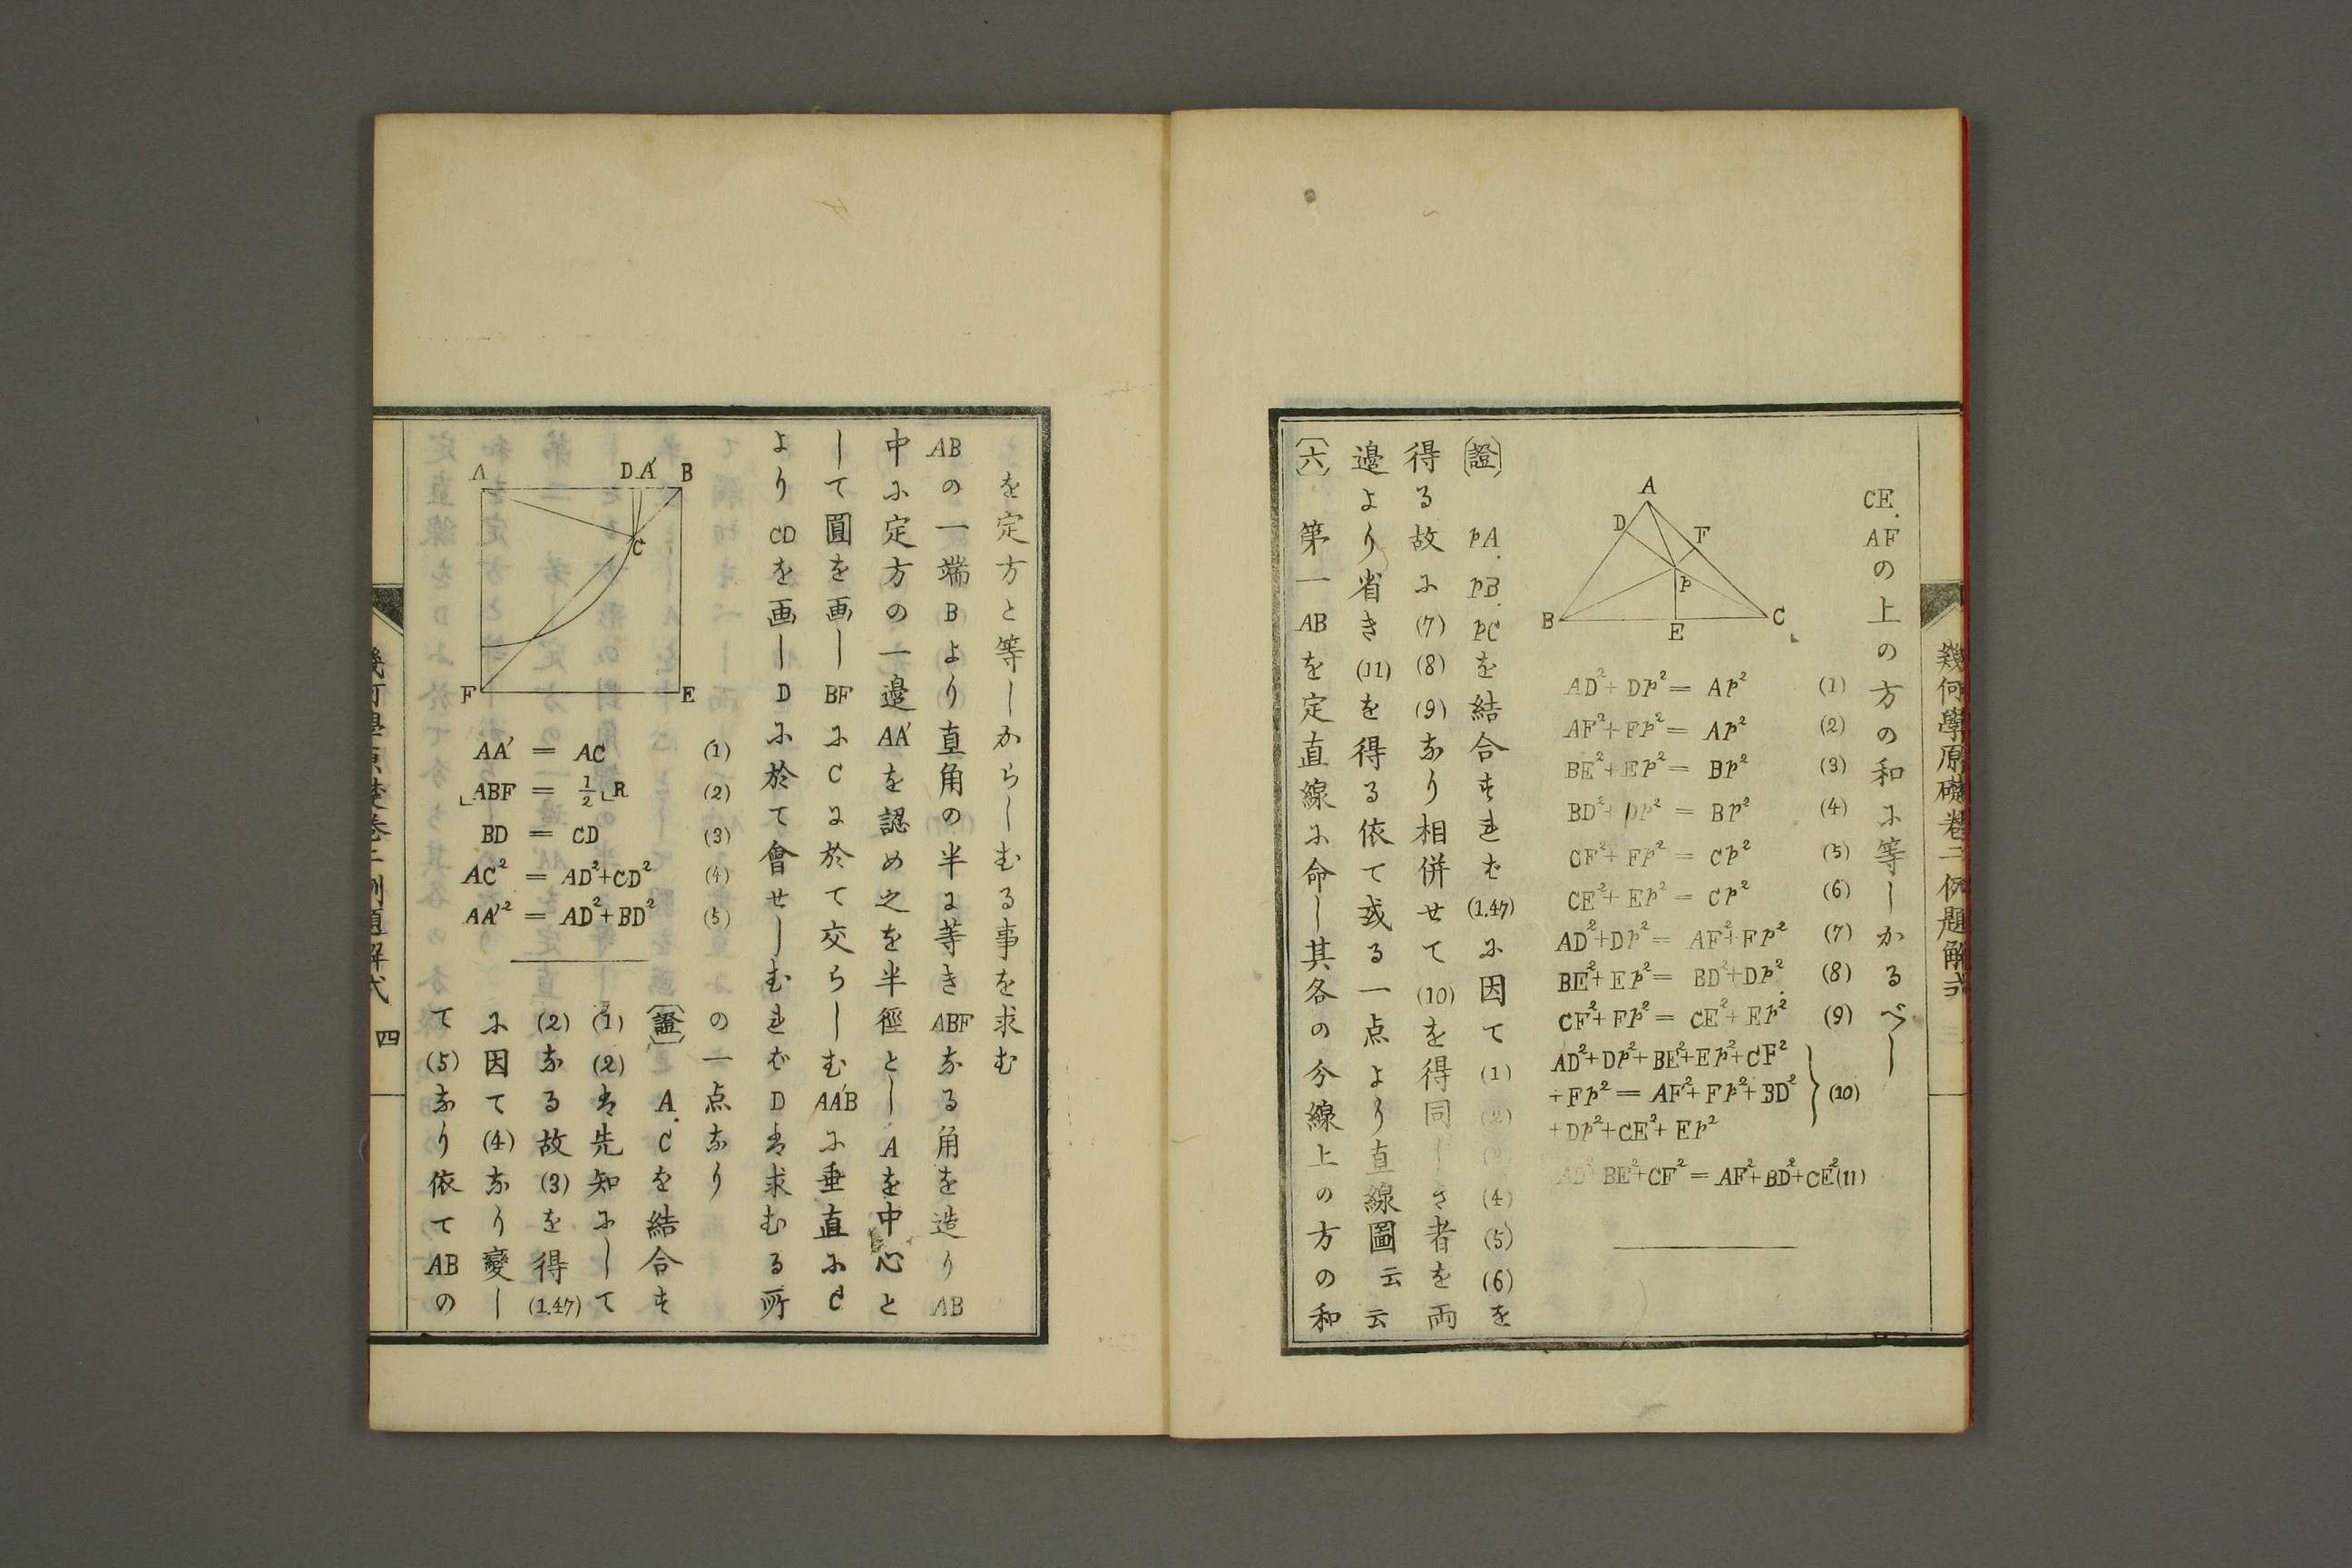 幾何學原礎卷二例題解式
CE.AFの上の方の和に等しかるべし
A
D
F
P
B
E
C
AD²+DP²= AP² (1)
AF²+FP²= AP² (2)
BE²+EP²= BP² (3)
BD²+DP² = BP² (4)
CF²+FP² = CP² (5)
CE²+EP² = CP² (6)
AD²+DP²= AF²+FP² (7)
BE²+EP²= BD²+DP² (8)
CF²+FP²= CE²+EP² (9)
AD²+DP²+BE²+EP²+CF²
+FP²= AF²+FP²+BD² (10)
+DP²+CE²+EP²
AD²+BE²+CF²=AF²+BD²+CE² (11)
〔證〕 PA.PB.PCを結合すれば(1.47)に因て(1)(2)(3)(4)(5)(6)を
得る故に(7)(8)(9)なり相併せて(10)を得同しき者を両
邉より省き(11)を得る依て或る一点より直線圖云云
〔六〕 第一ABを定直線に命し其各の分線上の方の和
を定方と等しからしむる事を求む
ABの一端Bより直角の半に等きABFなる角を造りAB
中に定方の一邉AA′を認め之を半徑としAを中心と
して圓を画しBFにCに於て交らしむAA′Bに垂直にC
よりCDを画しDに於て會せしむればDは求むる所
の一点なり
A
D
A′
B
C
F
E
AA′ = AC (1)
∟ABF = ½∟R (2)
BD = CD (3)
AC² = AD²+CD² (4)
AA′² = AD²+BD² (5)
〔證〕 A.Cを結合す
(1)(2)は先知にして
(2)なる故(3)を得(1.47)
に因て(4)なり變し
て(5)なり依てABの
幾何學原礎卷二例題解式 四